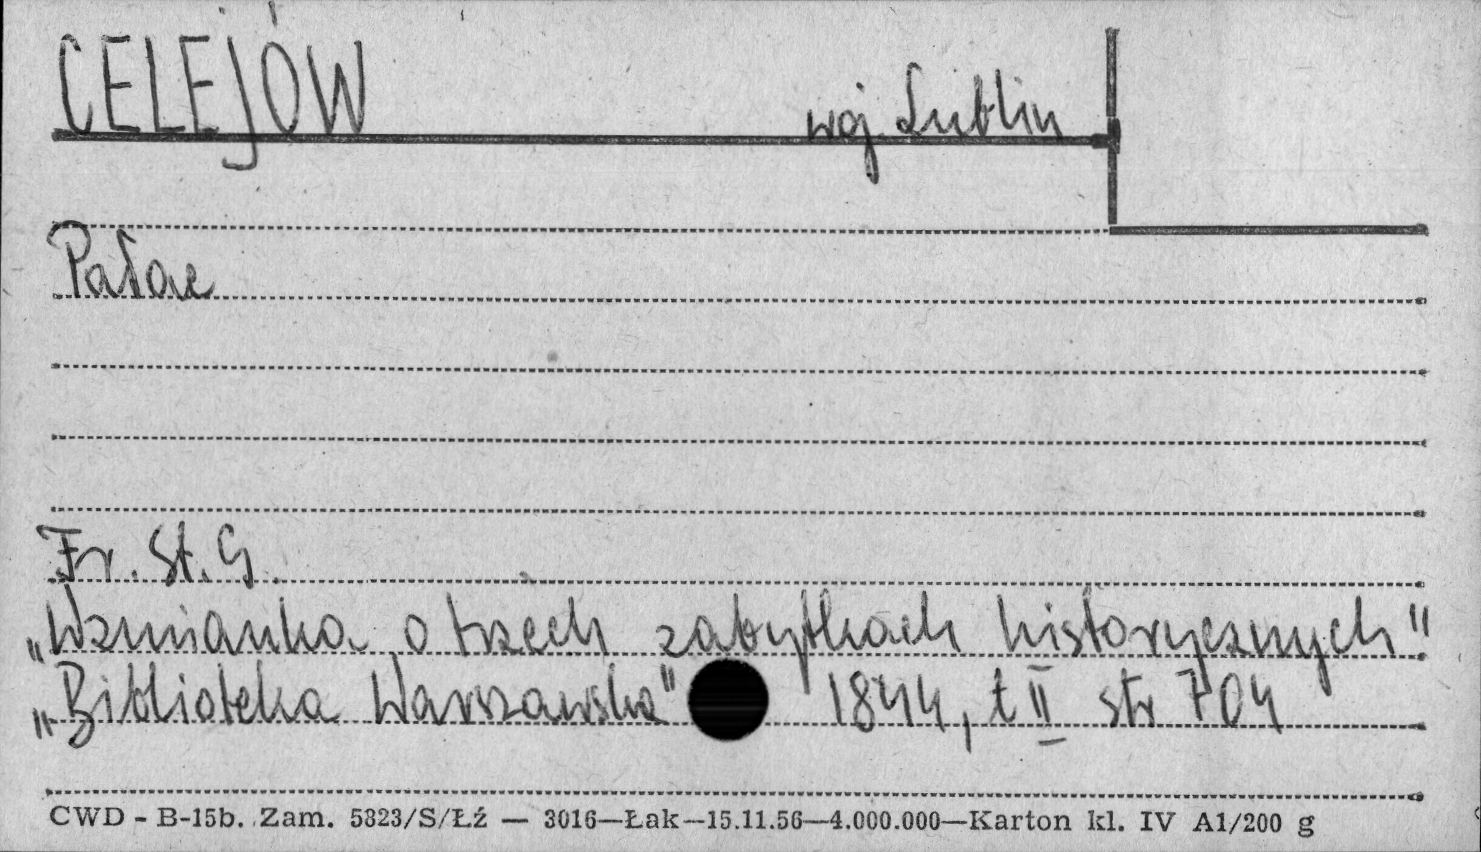 CELEJÓW woj. Lublin
Pałac
Fr. St. G.
„Wzmianka o trzech zabytkach historycznych"
„Biblioteka Warszawska" 1844, t II str 704
CWD - B-15b. Zam. 5823/S/Łź — 3016—Łak—15.11.56—4.000.000—Karton kl. IV A1/200 g